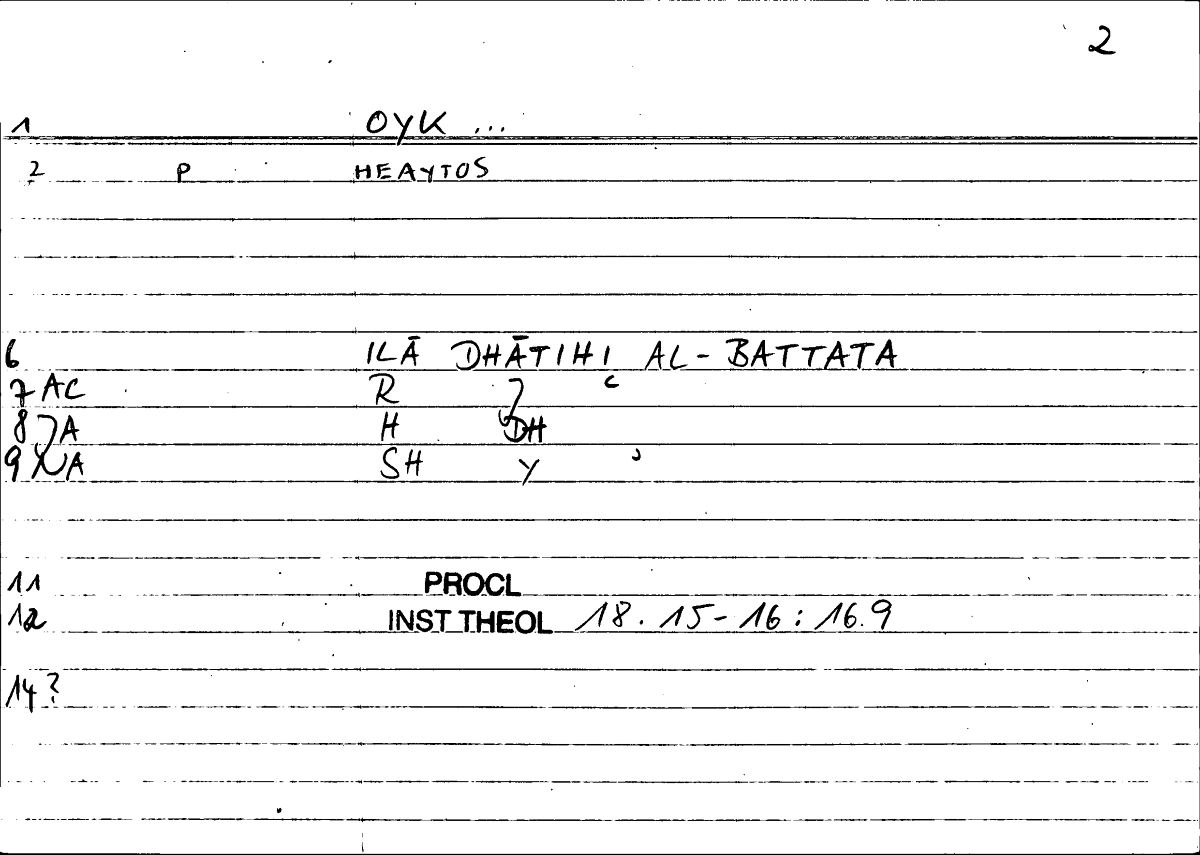 2
1 OYK ...
2 P HEAYTOS
6 ILĀ DHĀTIHI AL-BATTATA
7 AC R
8 A H DH
9 A SH Y
11 PROCL
12 INST THEOL 18.15-16:16.9
14?